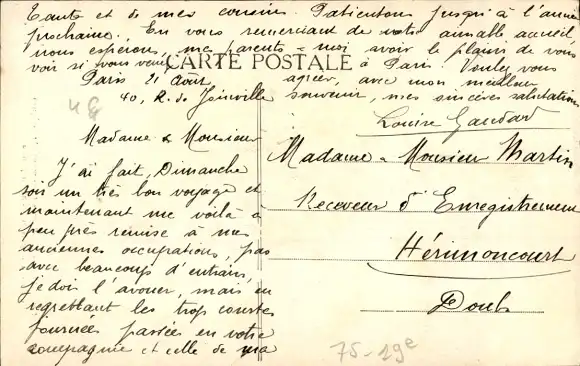 CARTE POSTALE
Paris 21 Août
40, R. de Joinville
Madame & Monsieur
J'ai fait, Dimanche
soir un très bon voyage et
maintenant me voilà à
peu près remise à mes
anciennes occupations, pas
avec beaucoup d'entrain,
je dois l'avouer, mais en
regrettant les trop courtes
journées passées en votre
compagnie et celle de ma
tante et de mes cousins. Patientons jusqu'à l'année
prochaine. En vous remerciant de votre aimable accueil,
nous espérons, mes parents & moi avoir le plaisir de vous
voir si vous venez à Paris. Veuillez vous
agréer, avec mon meilleur
souvenir, mes sincères salutations
Louise Gaudard
Madame & Monsieur Martin
Receveur d'Enregistrement
Hérimoncourt
Doubs
75-19e